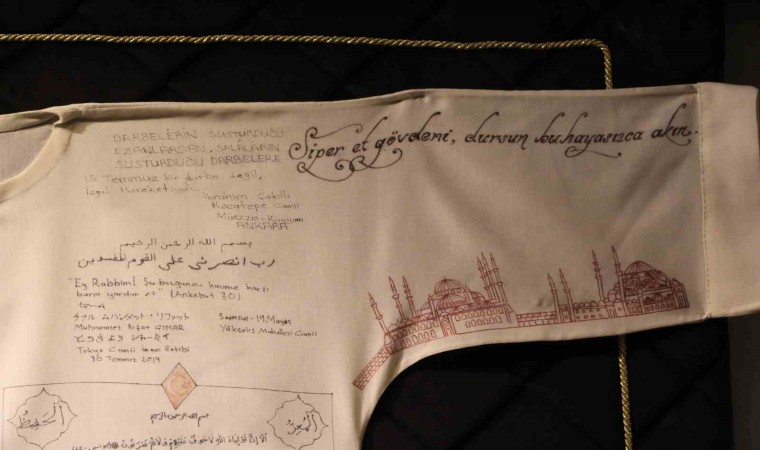 DARBELERİN SUSTURDUĞU
EZANLARDAN, SALALARIN
SUSTURDUĞU DARBELERE
15 Temmuz bir darbe değil,
İşgal Hareketiydi...
İbrahim
Kocatepe Camii
Müezzin-Kayyımı
ANKARA
Siper et gövdeni, dursun bu hayasızca akın.
بسم الله الرحمن الرحيم
رب انصرني على القوم المفسدين
"Ey Rabbim! Şu bozguncu kavme karşı
bana yardım et" (Ankebut 30)
Muhammet
Tokyo Camii İmam Hatibi
16 Temmuz 2019
Samsun-19 Mayıs
Yükseliş Mahallesi Camii
بسم الله الرحمن الرحيم
الحفيظ
المعز